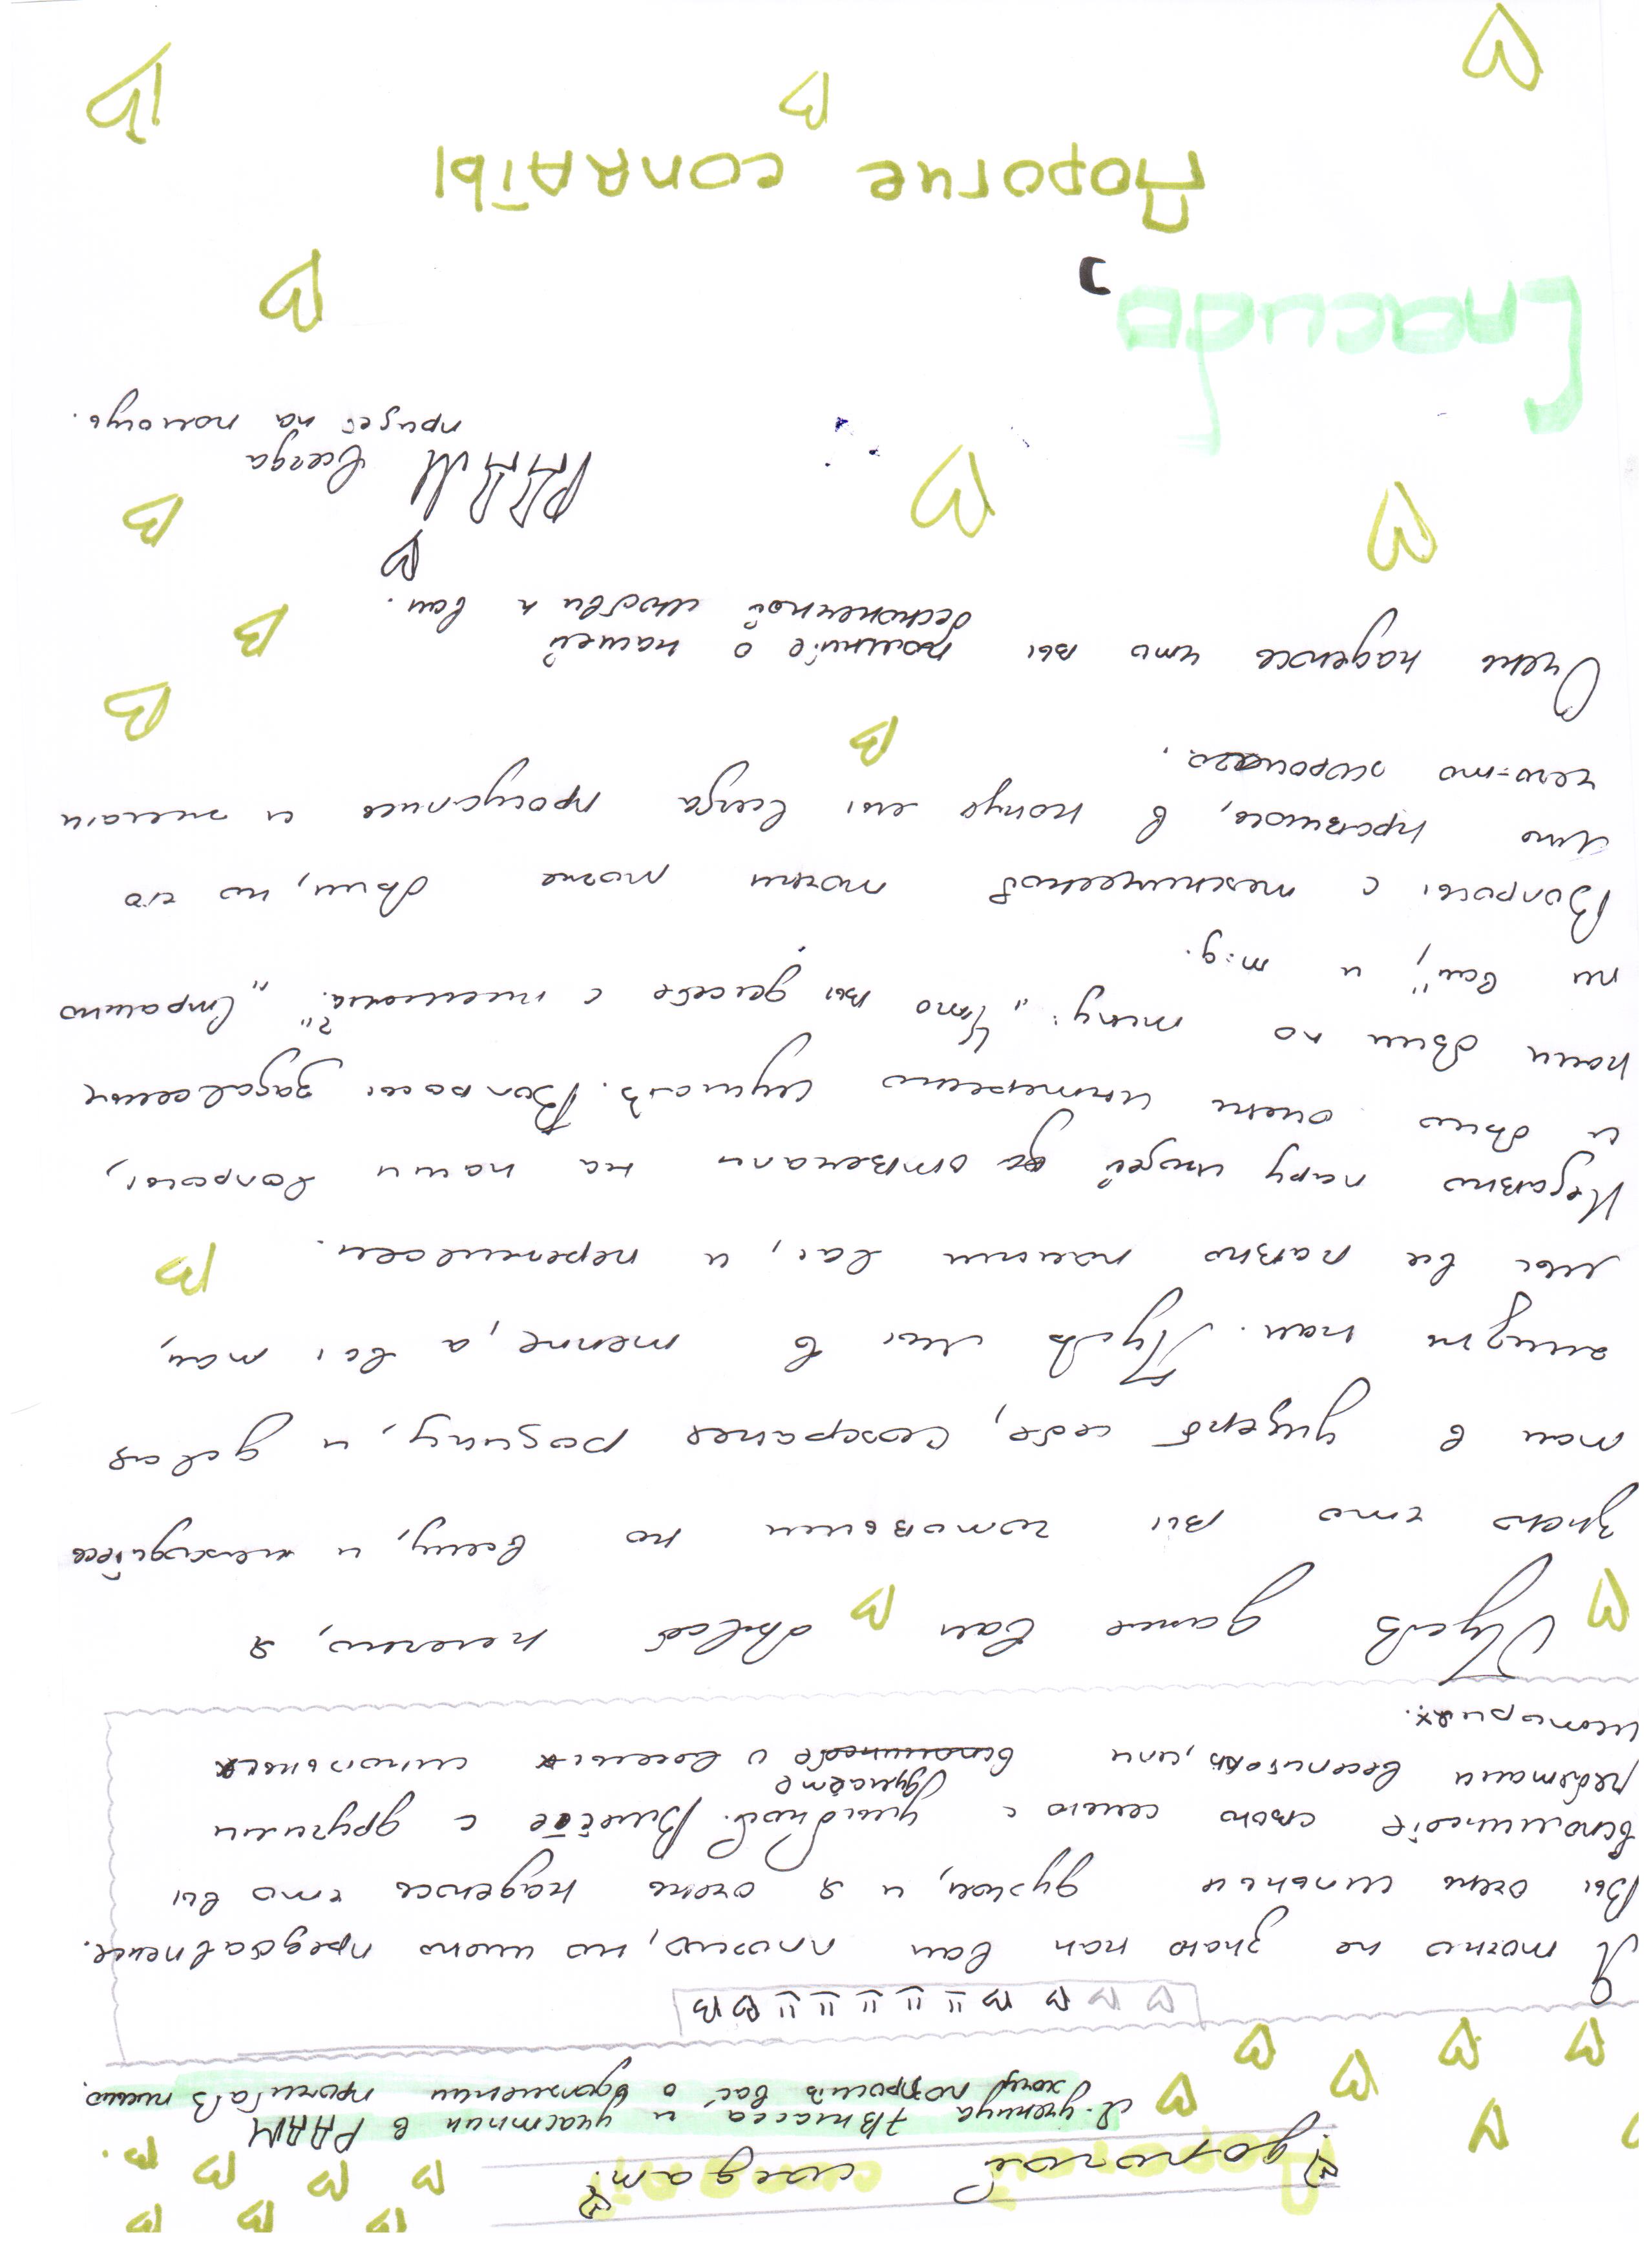 дорогой солдат
Я-ученица 7В класса, и участник в РДДМ
хочу попросить вас о одолжении прочитать письмо.
Я точно не знаю как вам плохо, но имею представление.
Вы очень сильные духом, и я очень надеюсь что вы
вспоминаете свою семью с улыбкой. Вместе с другими
думаете
ребятами веселитесь, или вспоминаете о веселых школьных
историях.
Пусть даже вам бывает нелегко, я
знаю что вы готовыми ко всему, и находитесь
там в ущерб себе, сохраняя родину, и давая
жизнь нам. Пусть мы в тепле, а вы там,
мы все равно помним вас, и переживаем.
Недавно пару людей отвечали на наши вопросы,
и было очень интересно слушать. Вопросы задаваемые
нами были по типу: „Что вы делаете с письмами?" „Страшно
ли вам", и т.д.
Вопросы с технической точки тоже были, но что
мне нравилось, в конце мы всегда прощались и желали
чего-то хорошего.
Очень надеюсь что вы помните о нашей
бесконечной любви к вам.
РДДМ всегда
придет на помощь.
Спасибо,
Дорогие солдаты